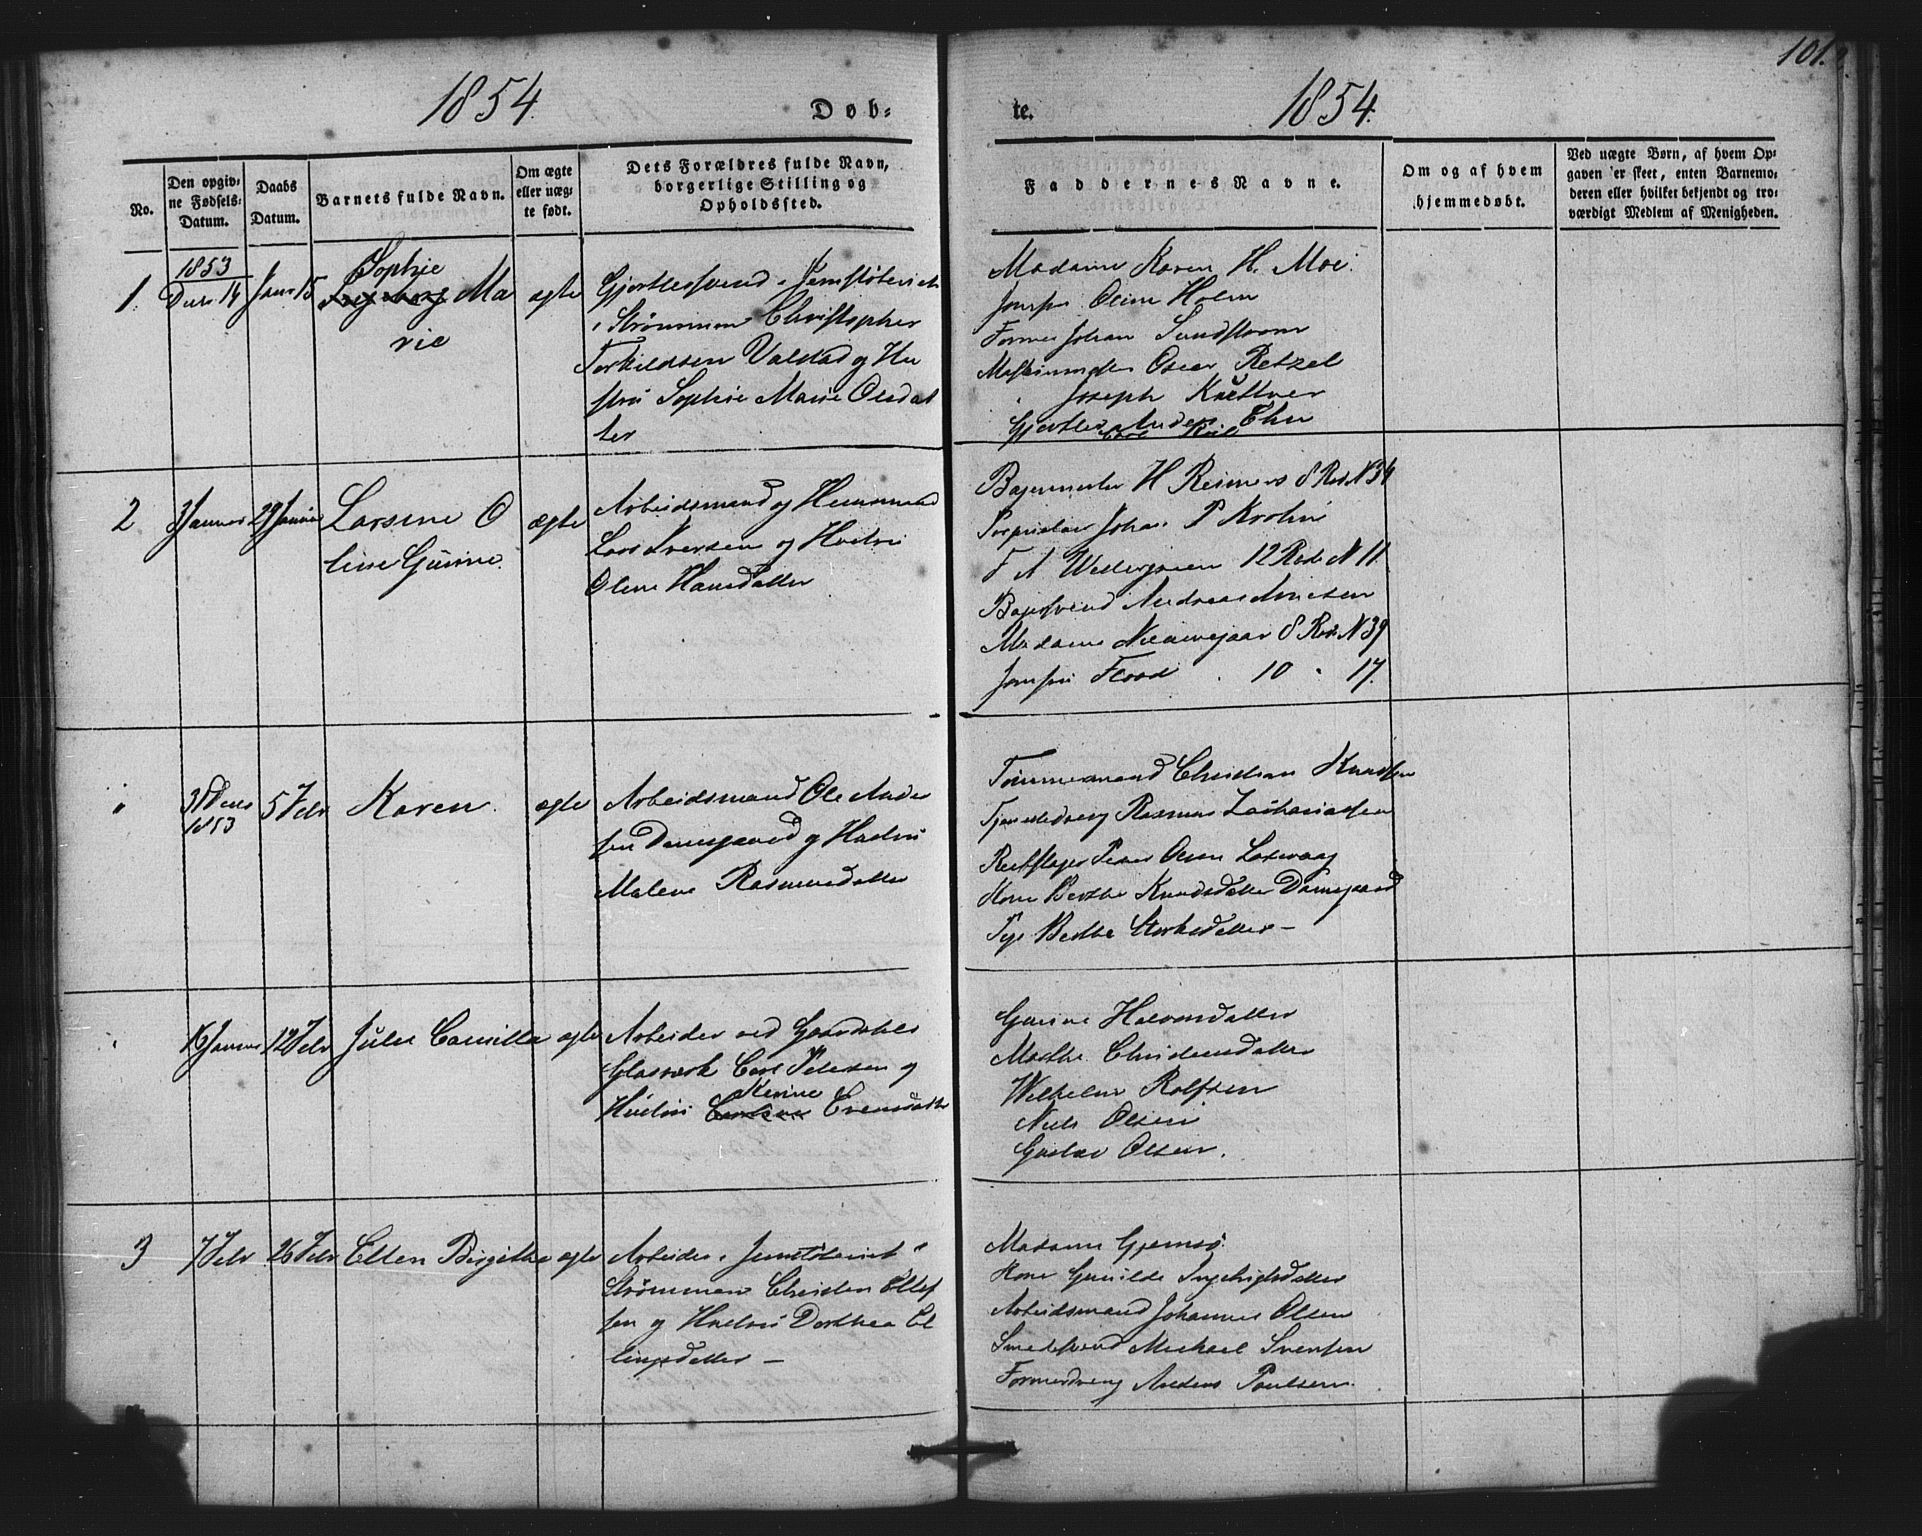 101.
1854.
Døb-
te.
1854.
No.
Den opgiv-
ne Fødsels-
Datum.
Daabs
Datum.
Barnets fulde Navn.
Om ægte
eller uæg-
te født.
Dets Forældres fulde Navn,
borgerlige Stilling og
Opholdssted.
Faddernes Navne.
Om og af hvem
hjemmedøbt.
Ved uægte Børn, af hvem Op-
gaven er skeet, enten Barnemo-
deren eller hvilket bekjendt og tro-
værdigt Medlem af Menigheden.
1.
1853
Decr 14
Janr 15
Sophie
Ingeborg Ma
rie
ægte
Gjørtlersvend i Jernstøberiet
i Strømmen Christopher
Torkildsen Valstad og Hu
stru Sophie Marie Olsdat
ter
Madame Karen H. Moe.
Jomfru Oline Holm
Former Johan Sundstrøm
Oscar Retzel
Joseph
Gjørtler Anders
2
3 Januar
29 Januar
Larsine O
line Gurine
ægte
Arbeidsmand og Huusmand
Lars Iversen og Hustru
Olene Hansdatter
Bagermester H Reimers 8 Rode N 34
Johan P Krohn
F A 12 Rode N 11
Bagersvend Andreas Arnesen
Madame 8 Rode N 39
Jomfru Flood " 10 " 17.
"
31 Decr
1853
5 Febr
Karen.
ægte
Arbeidsmand Ole Ander
sen Damsgaard og Hustru
Malene Rasmusdatter
Tømmermand Christian Knudsen
Tjenestedreng Rasmus Zachariassen
Reebslager Peder Olsen Laxevaag
Kone Berthe Knudsdatter Damsgaard
Pige Berthe –
"
16 Januar
12 Febr
Julie Camilla
ægte
Arbeider ved
Glasværk Carl Petersen og
Kerine
Hustru Evensdatter
Gurine Halvorsdatter
Marthe Christensdatter
Wilhelm Rolfsen
Niels Olsen
Gustav Olsen.
3
7 Febr
26 Febr
Ellen Birgithe
ægte
Arbeider i Jernstøberiet i
Strømmen Christen Ellef
sen og Hustru Dorthea El
lingsdatter –
Madame Gjemsø.
Kone Gunilde Ingebrigtsdatter
Arbeidsmand Johannes Olsen
Smedesvend Michael Svensen
Formerdreng Anders Paulsen.